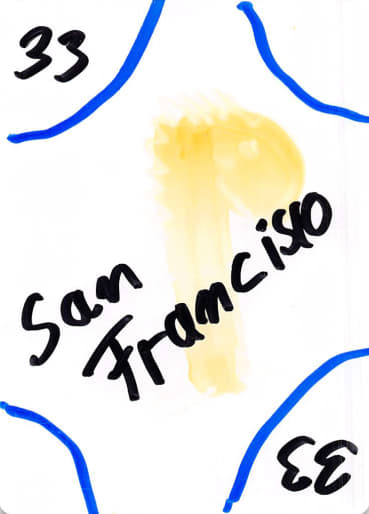 33
San
Framcisko
33